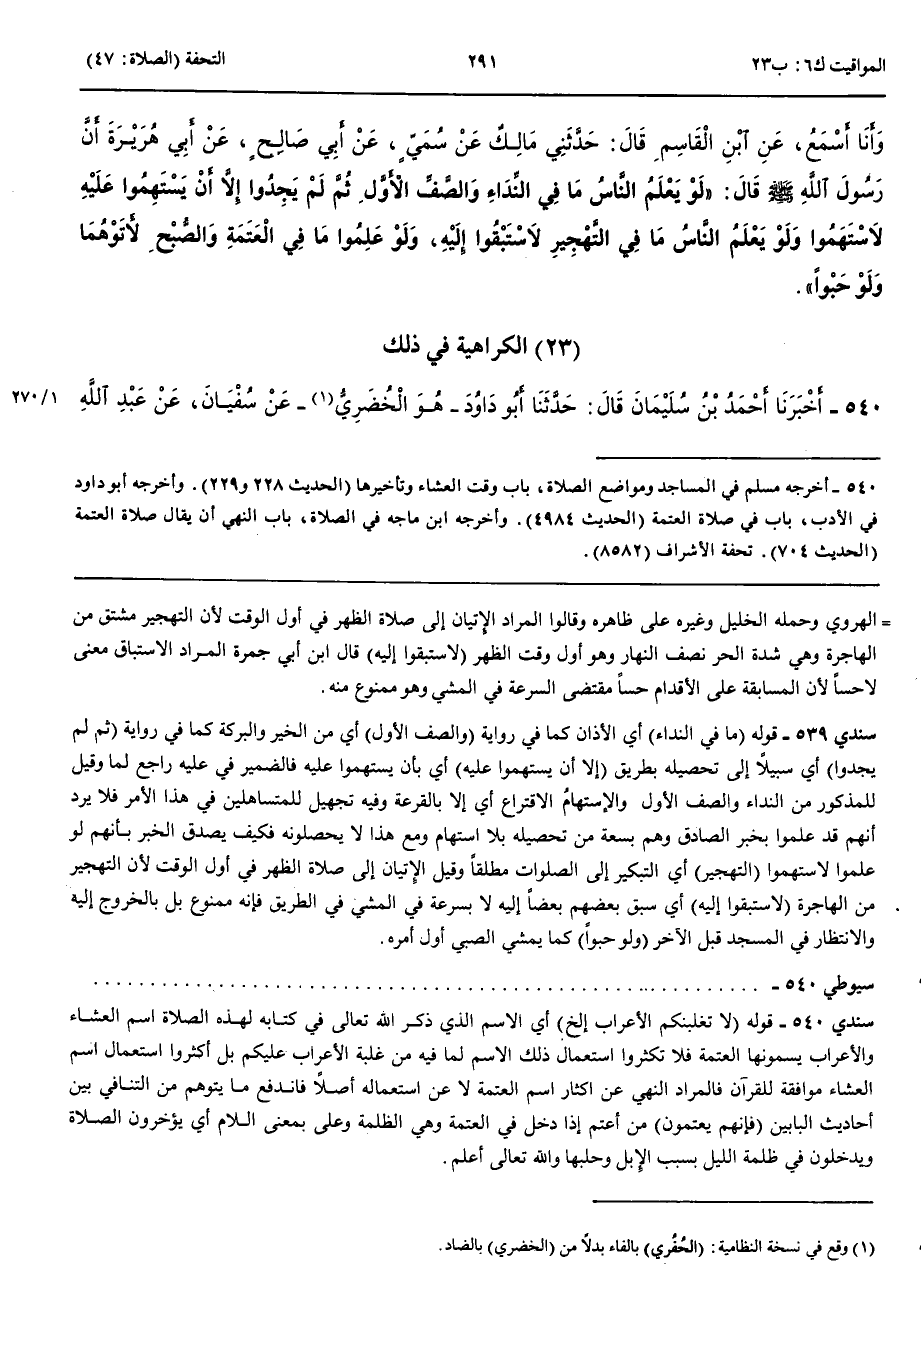 المواقيت ك٦: ب٢٣ ٢٩١ التحفة (الصلاة: ٤٧)
وَأَنَا أَسْمَعُ، عَنِ ٱبْنِ الْقَاسِمِ قَالَ: حَدَّثَنِي مَالِكٌ عَنْ سُمَيٍّ، عَنْ أَبِي صَالِحٍ، عَنْ أَبِي هُرَيْرَةَ أَنَّ
رَسُولَ ٱللَّهِ ﷺ قَالَ: «لَوْ يَعْلَمُ النَّاسُ مَا فِي النِّدَاءِ وَالصَّفِّ الْأَوَّلِ ثُمَّ لَمْ يَجِدُوا إِلاَّ أَنْ يَسْتَهِمُوا عَلَيْهِ
لَاسْتَهَمُوا وَلَوْ يَعْلَمُ النَّاسُ مَا فِي التَّهْجِيرِ لَاسْتَبَقُوا إِلَيْهِ، وَلَوْ عَلِمُوا مَا فِي الْعَتَمَةِ وَالصُّبْحِ لَأَتَوْهُمَا
وَلَوْ حَبْواً».
(٢٣) الكراهية في ذلك
٥٤٠ ـ أَخْبَرَنَا أَحْمَدُ بْنُ سُلَيْمَانَ قَالَ: حَدَّثَنَا أَبُو دَاوُدَ ـ هُـوَ الْخُضَرِيُّ(١) ـ عَنْ سُفْيَـانَ، عَنْ عَبْدِ ٱللَّهِ ٢٧٠/١
٥٤٠ ـ أخرجه مسلم في المساجد ومواضع الصلاة، باب وقت العشاء وتأخيرها (الحديث ٢٢٨ و٢٢٩). وأخرجه أبو داود
في الأدب، باب في صلاة العتمة (الحديث ٤٩٨٤). وأخرجه ابن ماجه في الصلاة، باب النهي أن يقال صلاة العتمة
(الحديث ٧٠٤). تحفة الأشراف (٨٥٨٢).
= الهروي وحمله الخليل وغيره على ظاهره وقالوا المراد الإتيان إلى صلاة الظهر في أول الوقت لأن التهجير مشتق من
الهاجرة وهي شدة الحر نصف النهار وهو أول وقت الظهر (لاستبقوا إليه) قال ابن أبي جمرة المـراد الاستباق معنى
لا حساً لأن المسابقة على الأقدام حساً مقتضى السرعة في المشي وهو ممنوع منه.
سندي ٥٣٩ ـ قوله (ما في النداء) أي الأذان كما في رواية (والصف الأول) أي من الخير والبركة كما في رواية (ثم لم
يجدوا) أي سبيلاً إلى تحصيله بطريق (إلا أن يستهموا عليه) أي بأن يستهموا عليه فالضمير في عليه راجع لما وقيل
للمذكور من النداء والصف الأول والإستهامُ الاقتراع أي إلا بالقرعة وفيه تجهيل للمتساهلين في هذا الأمر فلا يرد
أنهم قد علموا بخبر الصادق وهم بسعة من تحصيله بلا استهام ومع هذا لا يحصلونه فكيف يصدق الخبر بـأنهم لو
علموا لاستهموا (التهجير) أي التبكير إلى الصلوات مطلقاً وقيل الإتيان إلى صلاة الظهر في أول الوقت لأن التهجير
من الهاجرة (لاستبقوا إليه) أي سبق بعضهم بعضاً إليه لا بسرعة في المشي في الطريق فإنه ممنوع بل بالخروج إليه
والانتظار في المسجد قبل الآخر (ولو حبواً) كما يمشي الصبي أول أمره.
سيوطي ٥٤٠ ـ ..........................................................
سندي ٥٤٠ ـ قوله (لا تغلبنكم الأعراب إلخ) أي الاسم الذي ذكـر الله تعالى في كتـابه لهـذه الصلاة اسم العشـاء
والأعراب يسمونها العتمة فلا تكثروا استعمال ذلك الاسم لما فيه من غلبة الأعراب عليكم بل أكثروا استعمال اسم
العشاء موافقة للقرآن فالمراد النهي عن اكثار اسم العتمة لا عن استعماله أصـلاً فـاندفع مـا يتوهم من التنـافي بين
أحاديث البابين (فإنهم يعتمون) من أعتم إذا دخل في العتمة وهي الظلمة وعلى بمعنى الـلام أي يؤخرون الصـلاة
ويدخلون في ظلمة الليل بسبب الإبل وحلبها والله تعالى أعلم.
(١) وقع في نسخة النظامية: (الحُفُري) بالفاء بدلاً من (الخضري) بالضاد.